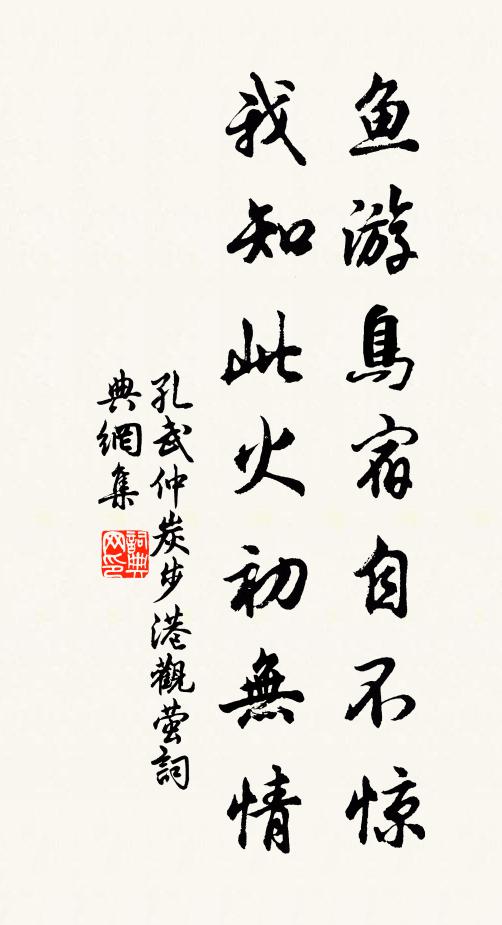 鱼游鳥宿自不惊
我知此火初無情
孔武仲炭步港觀萤詞
典網集
詞典
网印